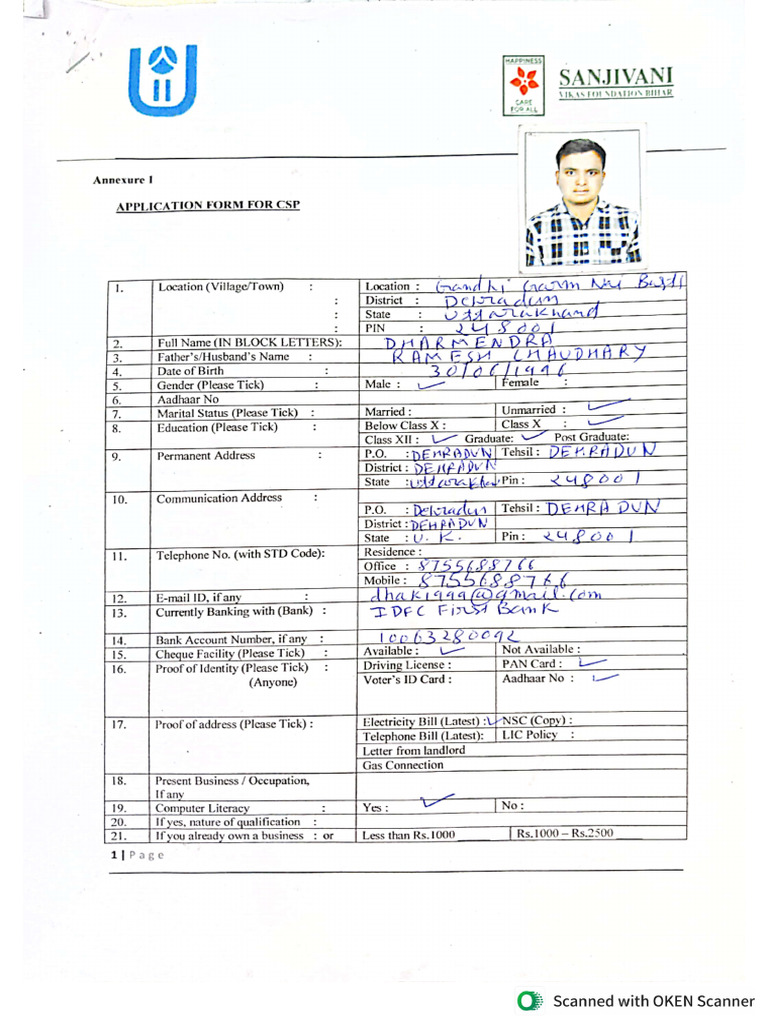 HAPPINESS
CARE
FOR ALL
SANJIVANI
VIKAS FOUNDATION BIHAR
Annexure I
APPLICATION FORM FOR CSP
1. Location (Village/Town) : Location : Gandhi Gram Nai Basti
: District : Dehradun
: State : Uttarakhand
: PIN : 248001
2. Full Name (IN BLOCK LETTERS): DHARMENDRA
3. Father's/Husband's Name : RAMESH CHAUDHARY
4. Date of Birth : 30/06/1996
5. Gender (Please Tick) : Male : ✓ Female :
6. Aadhaar No
7. Marital Status (Please Tick) : Married : Unmarried : ✓
8. Education (Please Tick) : Below Class X : Class X : ✓
Class XII : ✓ Graduate: ✓ Post Graduate:
9. Permanent Address : P.O. : DEHRADUN Tehsil : DEHRADUN
District : DEHRADUN
State : Uttarakhand Pin : 248001
10. Communication Address :
P.O. : Dehradun Tehsil : DEHRADUN
District : DEHRADUN
State : U.K. Pin : 248001
11. Telephone No. (with STD Code): Residence :
Office : 8755688766
Mobile : 8755688766
12. E-mail ID, if any : dhak1999@gmail.com
13. Currently Banking with (Bank) : IDFC First Bank
14. Bank Account Number, if any : 10063280092
15. Cheque Facility (Please Tick) : Available : ✓ Not Available :
16. Proof of Identity (Please Tick) : Driving License : PAN Card : ✓
(Anyone) Voter's ID Card : Aadhaar No : ✓
17. Proof of address (Please Tick) : Electricity Bill (Latest) : ✓ NSC (Copy) :
Telephone Bill (Latest): LIC Policy :
Letter from landlord
Gas Connection
18. Present Business / Occupation,
If any
19. Computer Literacy : Yes : ✓ No :
20. If yes, nature of qualification :
21. If you already own a business : or Less than Rs.1000 ______ Rs.1000 – Rs.2500 ____
1 | Page
Scanned with OKEN Scanner